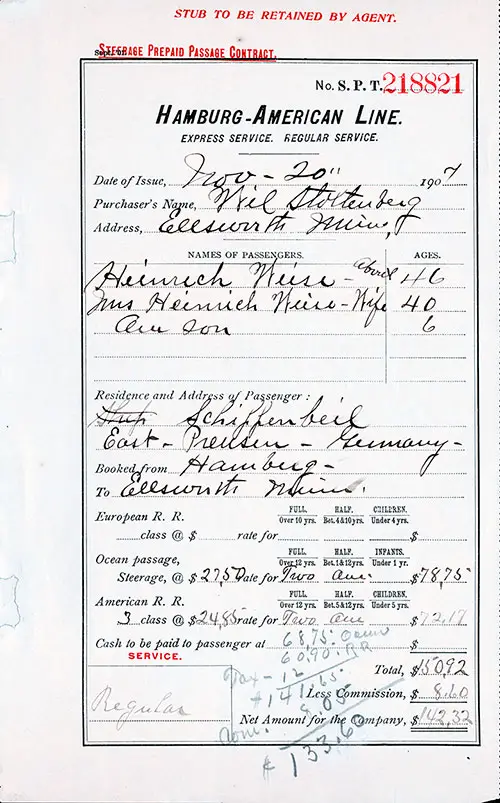 STUB TO BE RETAINED BY AGENT.
STEERAGE PREPAID PASSAGE CONTRACT.
No. S. P. T. 218821
HAMBURG-AMERICAN LINE.
EXPRESS SERVICE. REGULAR SERVICE.
Date of Issue, Nov - 20" 1907
Purchaser's Name, Wil Stoltenberg
Address, Ellsworth Minn,
NAMES OF PASSENGERS. AGES.
Heinrich Weise - about 46
Mrs Heinrich Weise - Wife 40
One son 6
Residence and Address of Passenger:
Schiffenbeil
East - Preusen - Germany -
Booked from Hamberg -
To Ellsworth Minn.
European R. R. FULL. HALF. CHILDREN.
Over 10 yrs. Bet. 4 & 10 yrs. Under 4 yrs.
class @ $ rate for $
Ocean passage, FULL. HALF. INFANTS.
Over 12 yrs. Bet. 1 & 12 yrs. Under 1 yr.
Steerage, @ $ 27,50 rate for Two One $ 78,75
American R. R. FULL. HALF. CHILDREN.
Over 12 yrs. Bet. 5 & 12 yrs. Under 5 yrs.
3 class @ $ 24,85 rate for Two One $ 72,17
Cash to be paid to passenger at $
68,75 Ocean
SERVICE.
60,90 RR
Tax - 12
Total, $ 150,92
$ 141,65
Less Commission, $ 8.60
Regular
Com. 8,05
Net Amount for the Company, $ 142,32
$ 133,60